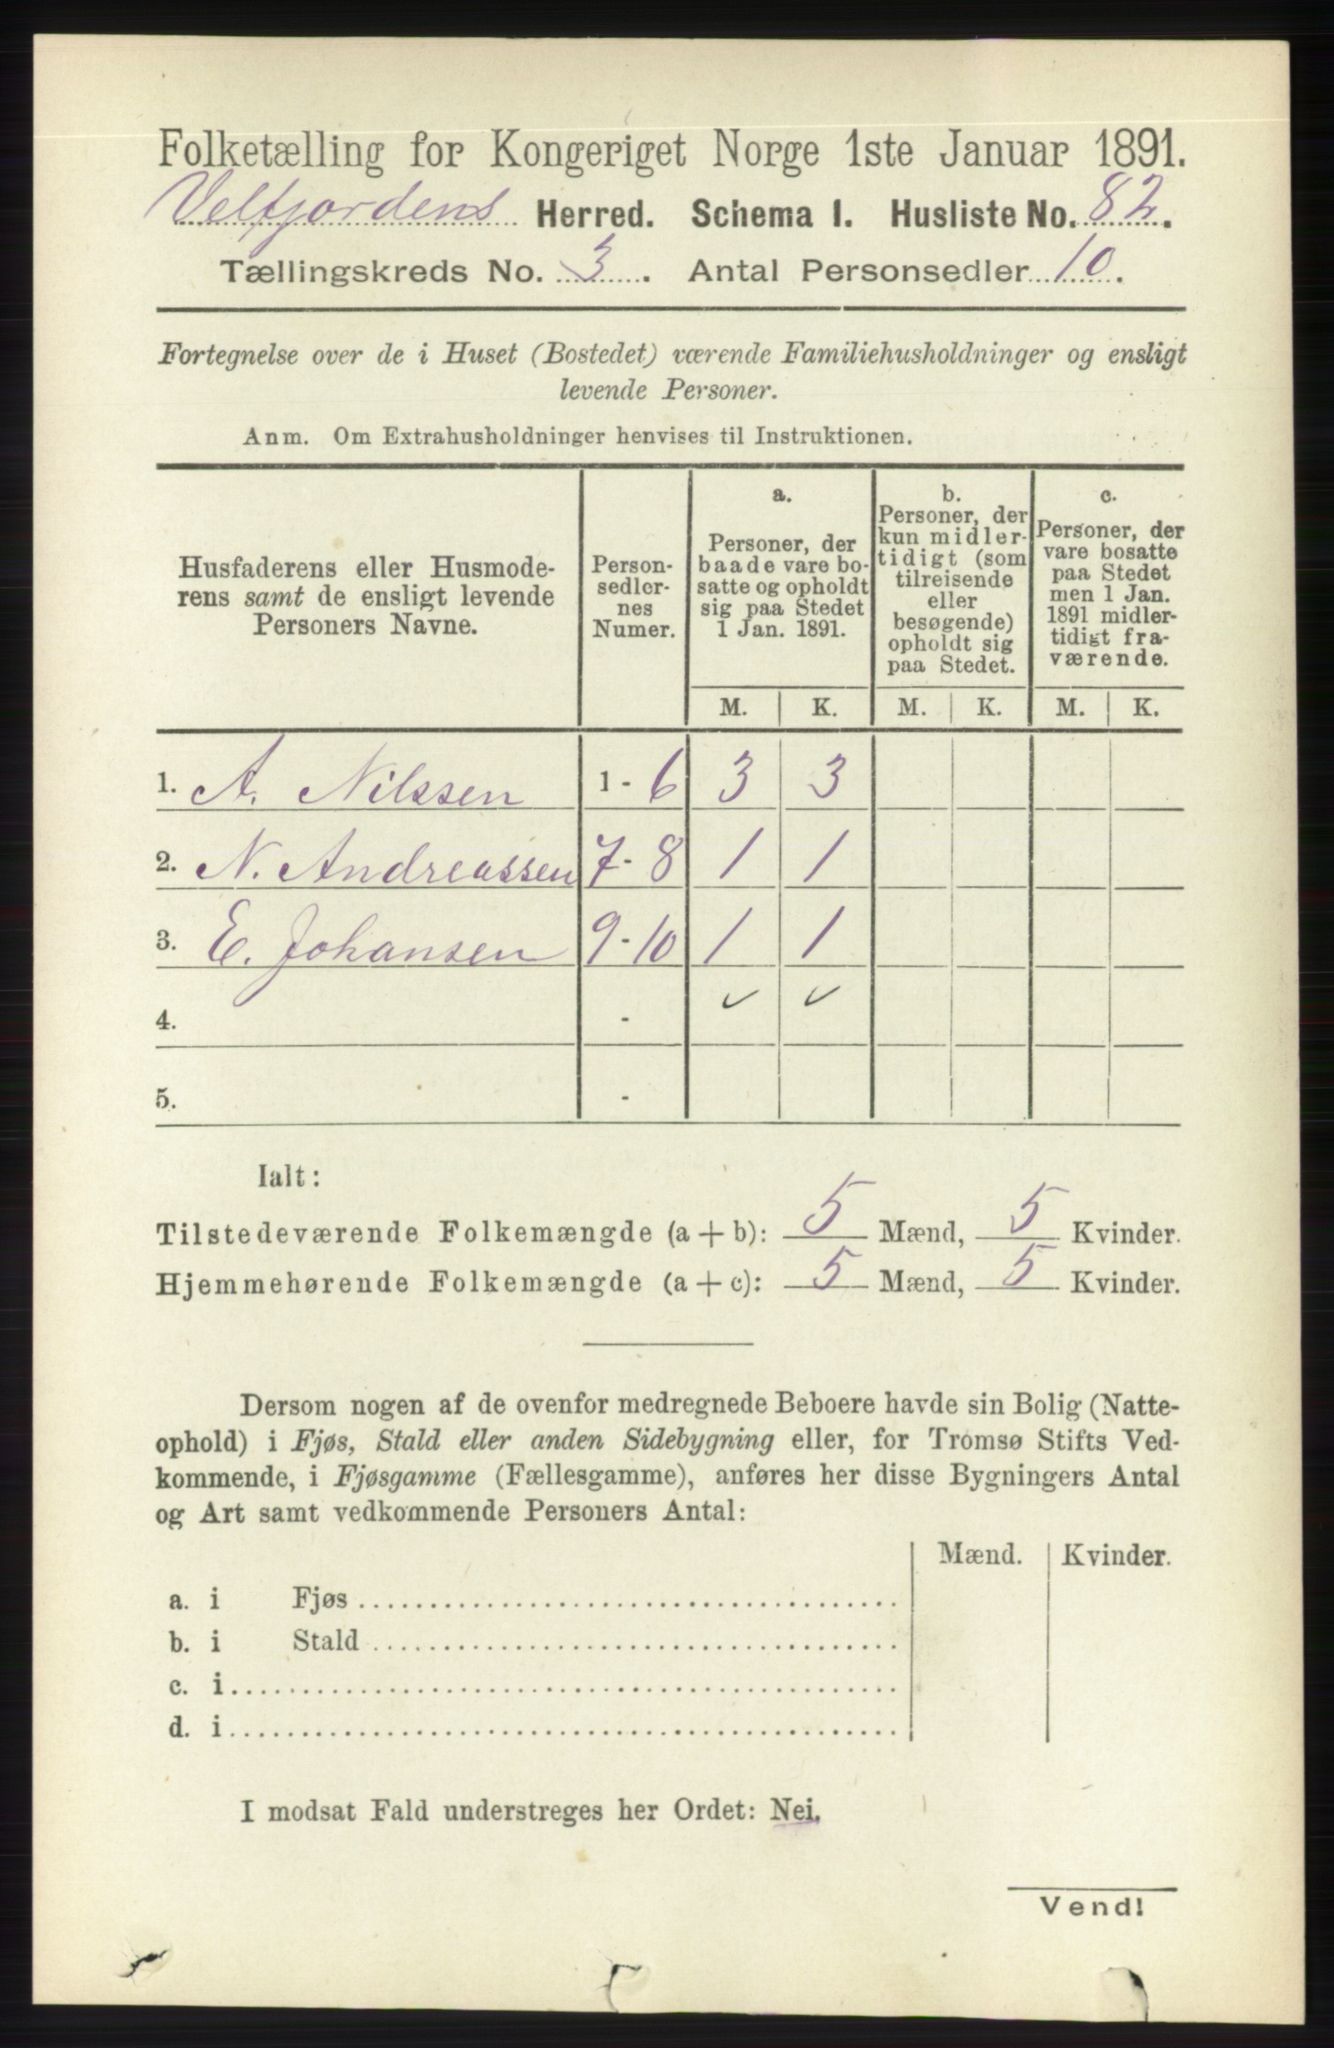 Folketælling for Kongeriget Norge 1ste Januar 1891.
Velfjordens Herred. Schema I. Husliste No. 82.
Tællingskreds No. 3. Antal Personsedler 10.
Fortegnelse over de i Huset (Bostedet) værende Familiehusholdninger og ensligt
levende Personer.
Anm. Om Extrahusholdninger henvises til Instruktionen.
Husfaderens eller Husmode-
rens samt de ensligt levende
Personers Navne.
Person-
sedler-
nes
Numer.
a.
Personer, der
baade vare bo-
satte og opholdt
sig paa Stedet
1 Jan. 1891.
b.
Personer, der
kun midler-
tidigt (som
tilreisende
eller
besøgende)
opholdt sig
paa Stedet.
c.
Personer, der
vare bosatte
paa Stedet
men 1 Jan.
1891 midler-
tidigt fra-
værende.
M. K. M. K. M. K.
1. A. Nilssen 1 - 6 3 3
2. N. Andreassen 7 - 8 1 1
3. E. Johansen 9 - 10 1 1
4. - ✓ ✓
5. -
Ialt:
Tilstedeværende Folkemængde (a + b): 5 Mænd, 5 Kvinder.
Hjemmehørende Folkemængde (a + c): 5 Mænd, 5 Kvinder.
Dersom nogen af de ovenfor medregnede Beboere havde sin Bolig (Natte-
ophold) i Fjøs, Stald eller anden Sidebygning eller, for Tromsø Stifts Ved-
kommende, i Fjøsgamme (Fællesgamme), anføres her disse Bygningers Antal
og Art samt vedkommende Personers Antal:
Mænd. Kvinder.
a. i Fjøs
b. i Stald
c. i
d. i
I modsat Fald understreges her Ordet: Nei.
Vend!